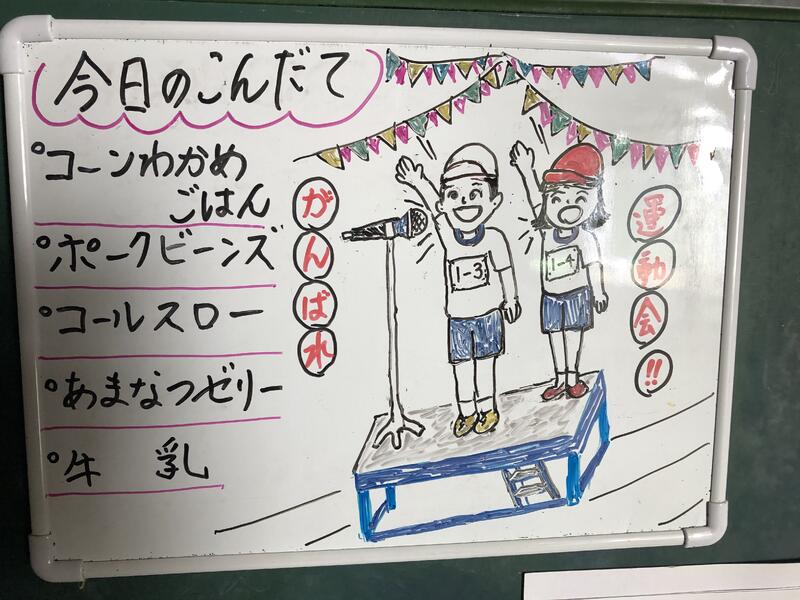 今日のこんだて
°コーンわかめ
ごはん
°ポークビーンズ
°コールスロー
°あまなつゼリー
°牛 乳
がんばれ
1-3
1-4
運動会!!